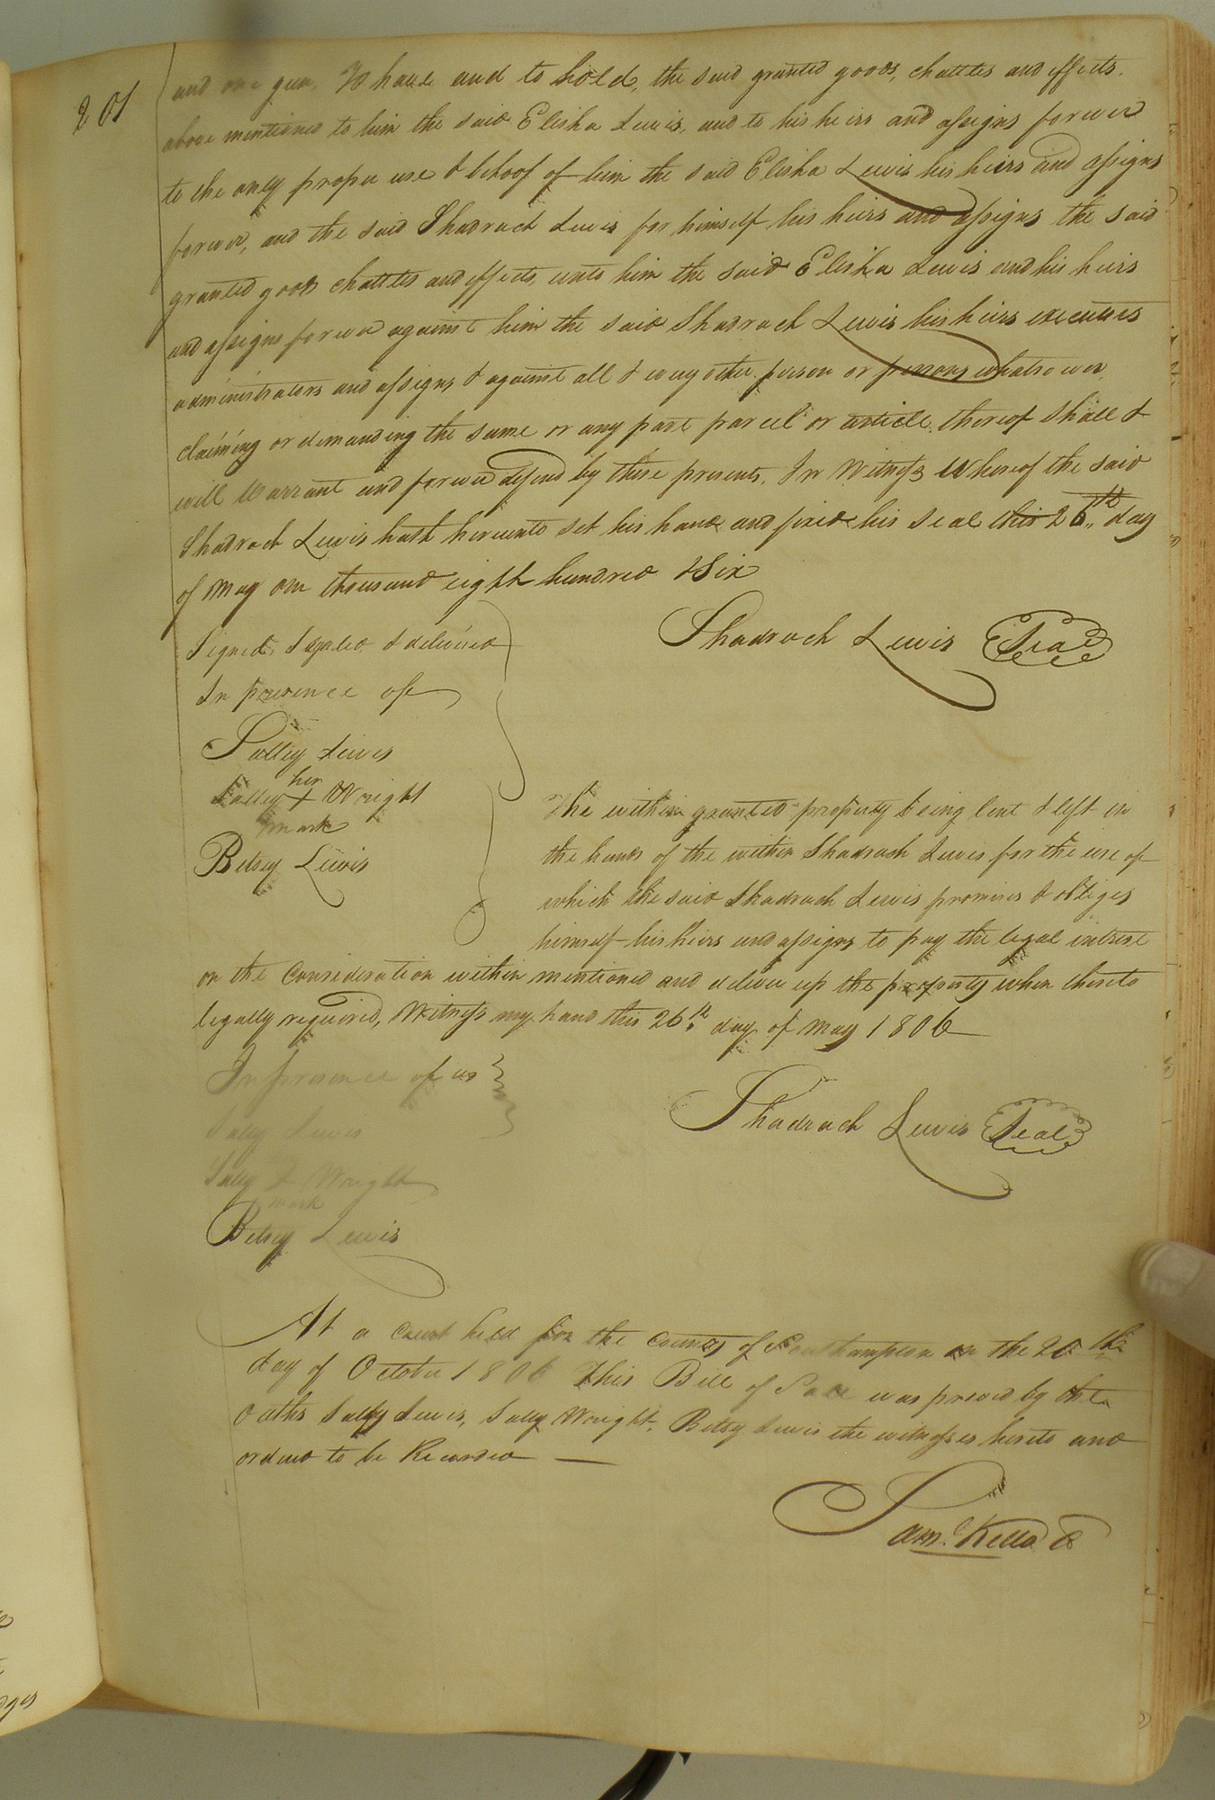 201
and one gun. To have and to hold, the said granted goods, chattles and effects.
above mentioned to him the said Elisha Lewis, and to his heirs and assigns forever
to the only proper use & behoof of him the said Elisha Lewis his heirs and assigns
forever, and the said Shadrach Lewis for himself his heirs and assigns the said
granted goods chattles and effects, unto him the said Elisha Lewis and his heirs
and assigns forever against him the said Shadrach Lewis his heirs executors
administrators and assigns & against all & every other person or persons whatsoever
claiming or demanding the same or any part parcel or article thereof shall &
will Warrant and forever defend by these presents. In Witness Whereof the said
Shadrach Lewis hath hereunto set his hand and fixed his seal this 26th day
of May one thousand eight hundred & Six
Signed, Sealed & delivered
Shadrach Lewis Seal
In presence of
Salley Lewis
her
Salley + Wright
mark
Betsey Lewis
The within granted property being lent & left in
the hands of the within Shadrach Lewis for the use of
which the said Shadrach Lewis promises & obliges
himself his heirs and assigns to pay the legal intrest
on the Consideration within mentioned and deliver up the property when thereto
legally required, Witness my hand this 26th day of May 1806
In presence of us
Shadrach Lewis Seal
Sally Lewis
Sally + Wright
mark
Betsey Lewis
At a Court held for the County of Southampton on the 20th
day of October 1806 This Bill of Sale was proved by the
oaths Sally Lewis, Sally Wright, Betsy Lewis the witnesses hereto and
ordered to be Recorded —
Saml. Kello C